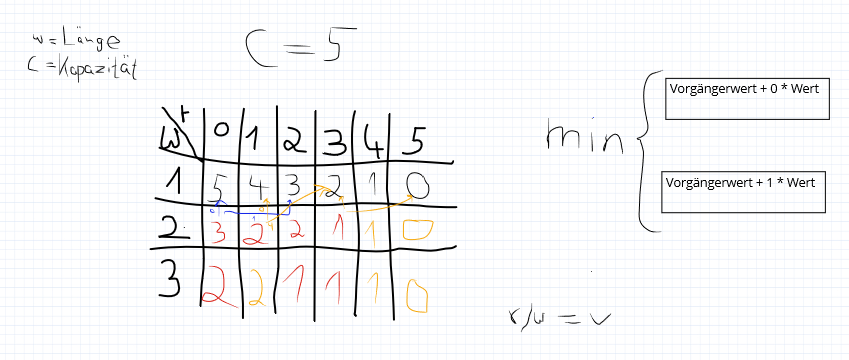 w = Länge
C = Kapazität
C = 5
r
w 0 1 2 3 4 5
1 5 4 3 2 1 0
2 3 2 2 1 1 0
3 2 2 1 1 1 0
min
Vorgängerwert + 0 * Wert
Vorgängerwert + 1 * Wert
r/w = v